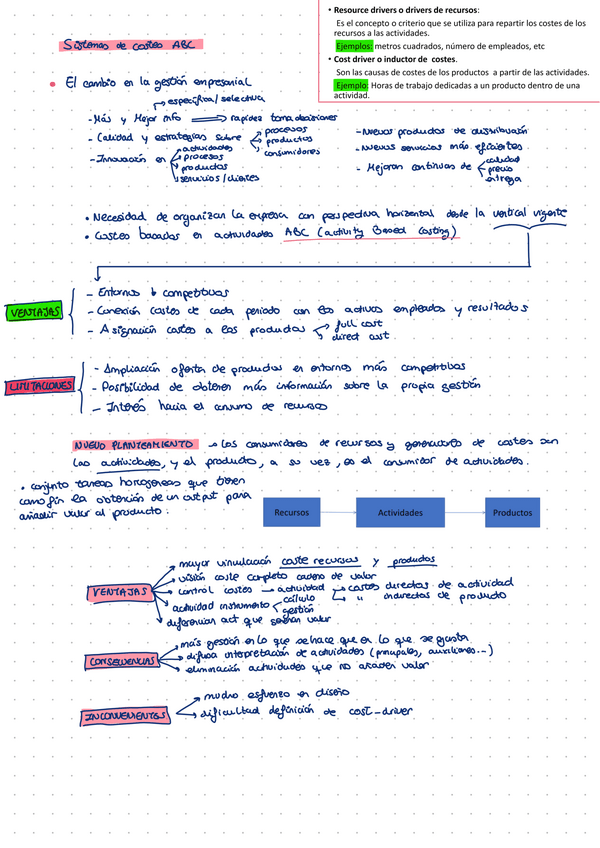 • Resource drivers o drivers de recursos:
Es el concepto o criterio que se utiliza para repartir los costes de los
recursos a las actividades.
Ejemplos: metros cuadrados, número de empleados, etc
• Cost driver o inductor de costes.
Son las causas de costes de los productos a partir de las actividades.
Ejemplo: Horas de trabajo dedicadas a un producto dentro de una
actividad.
Sistemas de costes ABC
• El cambio en la gestión empresarial
→ específica/selectiva
- Más y Mejor info ⟹ rapidez toma decisiones
- Calidad y estrategias sobre procesos
productos
consumidores
- Innovación en actividades
procesos
productos
servicios/clientes
- Nuevos productos de distribución
- Nuevos servicios más eficientes
- Mejoran continuas de calidad
precio
entrega
• Necesidad de organizar la empresa con perspectiva horizontal desde la vertical vigente
• Costes basados en actividades ABC (Activity Based Costing)
VENTAJAS
- Entornos ↓ competitivos
- Conexión costes de cada periodo con los activos empleados y resultados
- Asignación costes a los productos full cost
direct cost
LIMITACIONES
- Ampliación oferta de productos en entornos más competitivos
- Posibilidad de obtener más información sobre la propia gestión
- Interés hacia el consumo de recursos
NUEVO PLANTEAMIENTO → Los consumidores de recursos y generadores de costes son
las actividades, y el producto, a su vez, es el consumidor de actividades.
• conjunto tareas homogéneas que tienen
como fin la obtención de un output para
añadir valor al producto.
Recursos Actividades Productos
VENTAJAS
mayor vinculación coste recursos y productos
visión coste completo cadena de valor
control costes → actividad → costes directos de actividad
↳ " indirectos de producto
actividad instrumento cálculo
gestión
diferenciar act que generan valor
CONSECUENCIAS
más gestión en lo que se hace que en lo que se gasta
difusa interpretación de actividades (principales, auxiliares...)
eliminación actividades que no añaden valor
INCONVENIENTES
mucho esfuerzo en diseño
dificultad definición de cost-driver